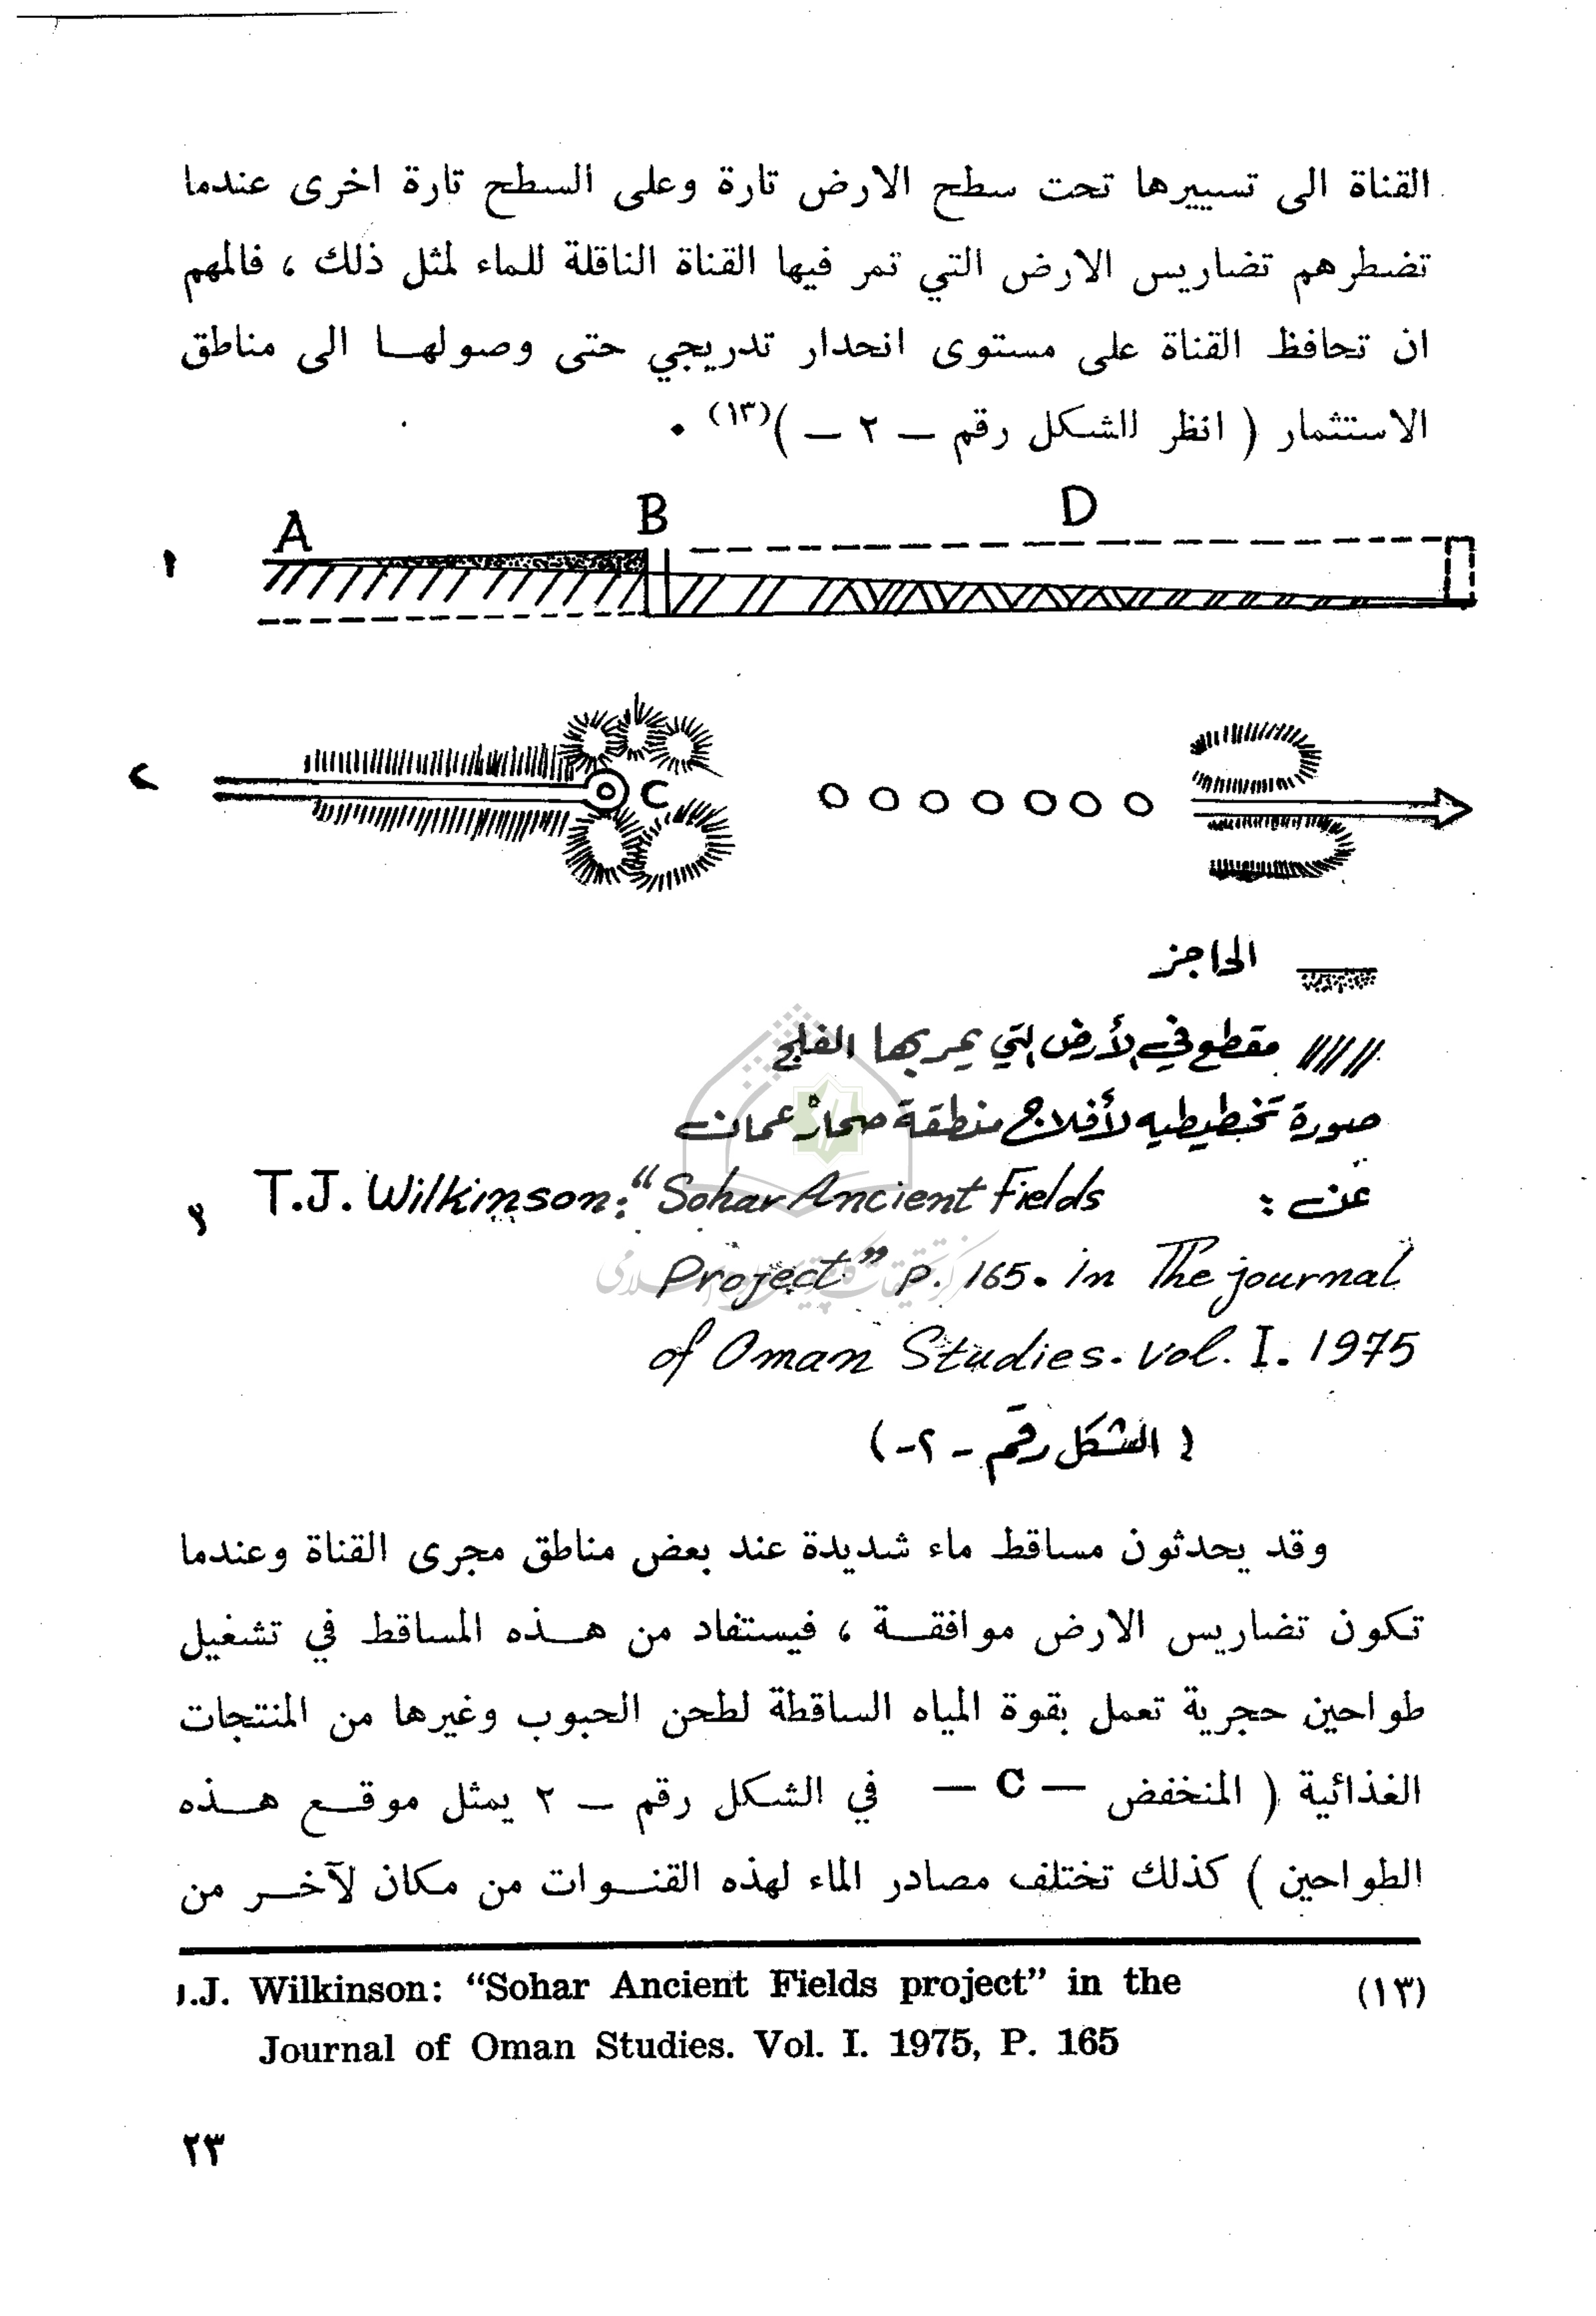 القناة الى تسييرها تحت سطح الارض تارة وعلى السطح تارة اخرى عندما
تضطرهم تضاريس الارض التي تمر فيها القناة الناقلة للماء لمثل ذلك ، فالمهم
ان تحافظ القناة على مستوى انحدار تدريجي حتى وصولهـا الى مناطق
الاستثمار ( انظر الشكل رقم ـ ٢ ـ )(١٣) .
A B D
١
٢
C
الحاجز
مقطع في الأرض التي يمر بها الفلج
صورة تخطيطيه لأفلاج منطقة صحار عمان
عن :
T.J. Wilkinson: "Sohar Ancient Fields
Project" p. 165. in The journal
of Oman Studies. vol. I. 1975
( الشكل رقم - ٢- )
وقد يحدثون مساقط ماء شديدة عند بعض مناطق مجرى القناة وعندما
تكون تضاريس الارض موافقـة ، فيستفاد من هـذه المساقط في تشغيل
طواحين حجرية تعمل بقوة المياه الساقطة لطحن الحبوب وغيرها من المنتجات
الغذائية ( المنخفض — C — في الشكل رقم ـ ٢ يمثل موقـع هـذه
الطواحين ) كذلك تختلف مصادر الماء لهذه القنـوات من مكان لآخـر من
(١٣) J.J. Wilkinson: "Sohar Ancient Fields project" in the
Journal of Oman Studies. Vol. I. 1975, P. 165
٢٣